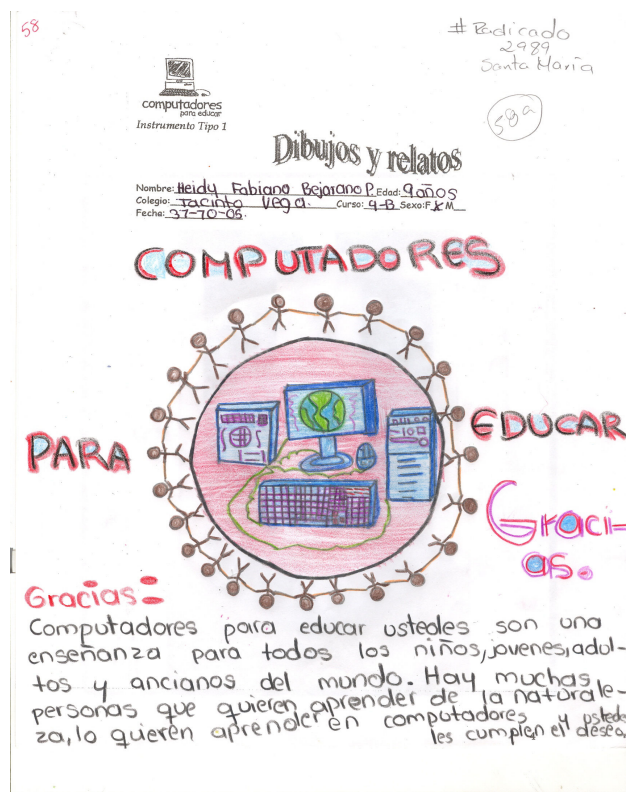 58
# Radicado
2989
Santa María
58a
computadores
para educar
Instrumento Tipo 1
Dibujos y relatos
Nombre: Heidy Fabiano Bejarano P. Edad: 9 años
Colegio: Jacinto Vega. Curso: 4-B Sexo: F X M
Fecha: 31-10-05.
COMPUTADORES
PARA
EDUCAR
Graci-
as.
Gracias:
Computadores para educar ustedes son una
enseñanza para todos los niños, jovenes, adul-
tos y ancianos del mundo. Hay muchas
personas que quieren aprender de la naturale-
za, lo quieren aprender en computadores y ustede
les cumplen el deseo,